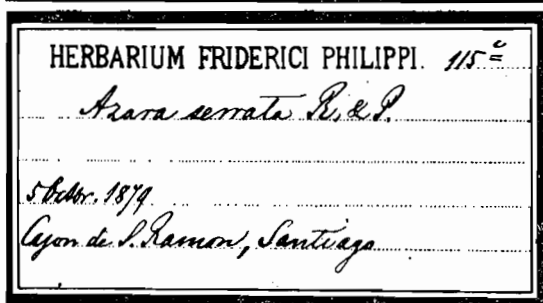 HERBARIUM FRIDERICI PHILIPPI. 115 c
Azara serrata R. & P.
5 Octbr. 1879
Cajon de S. Ramon, Santiago